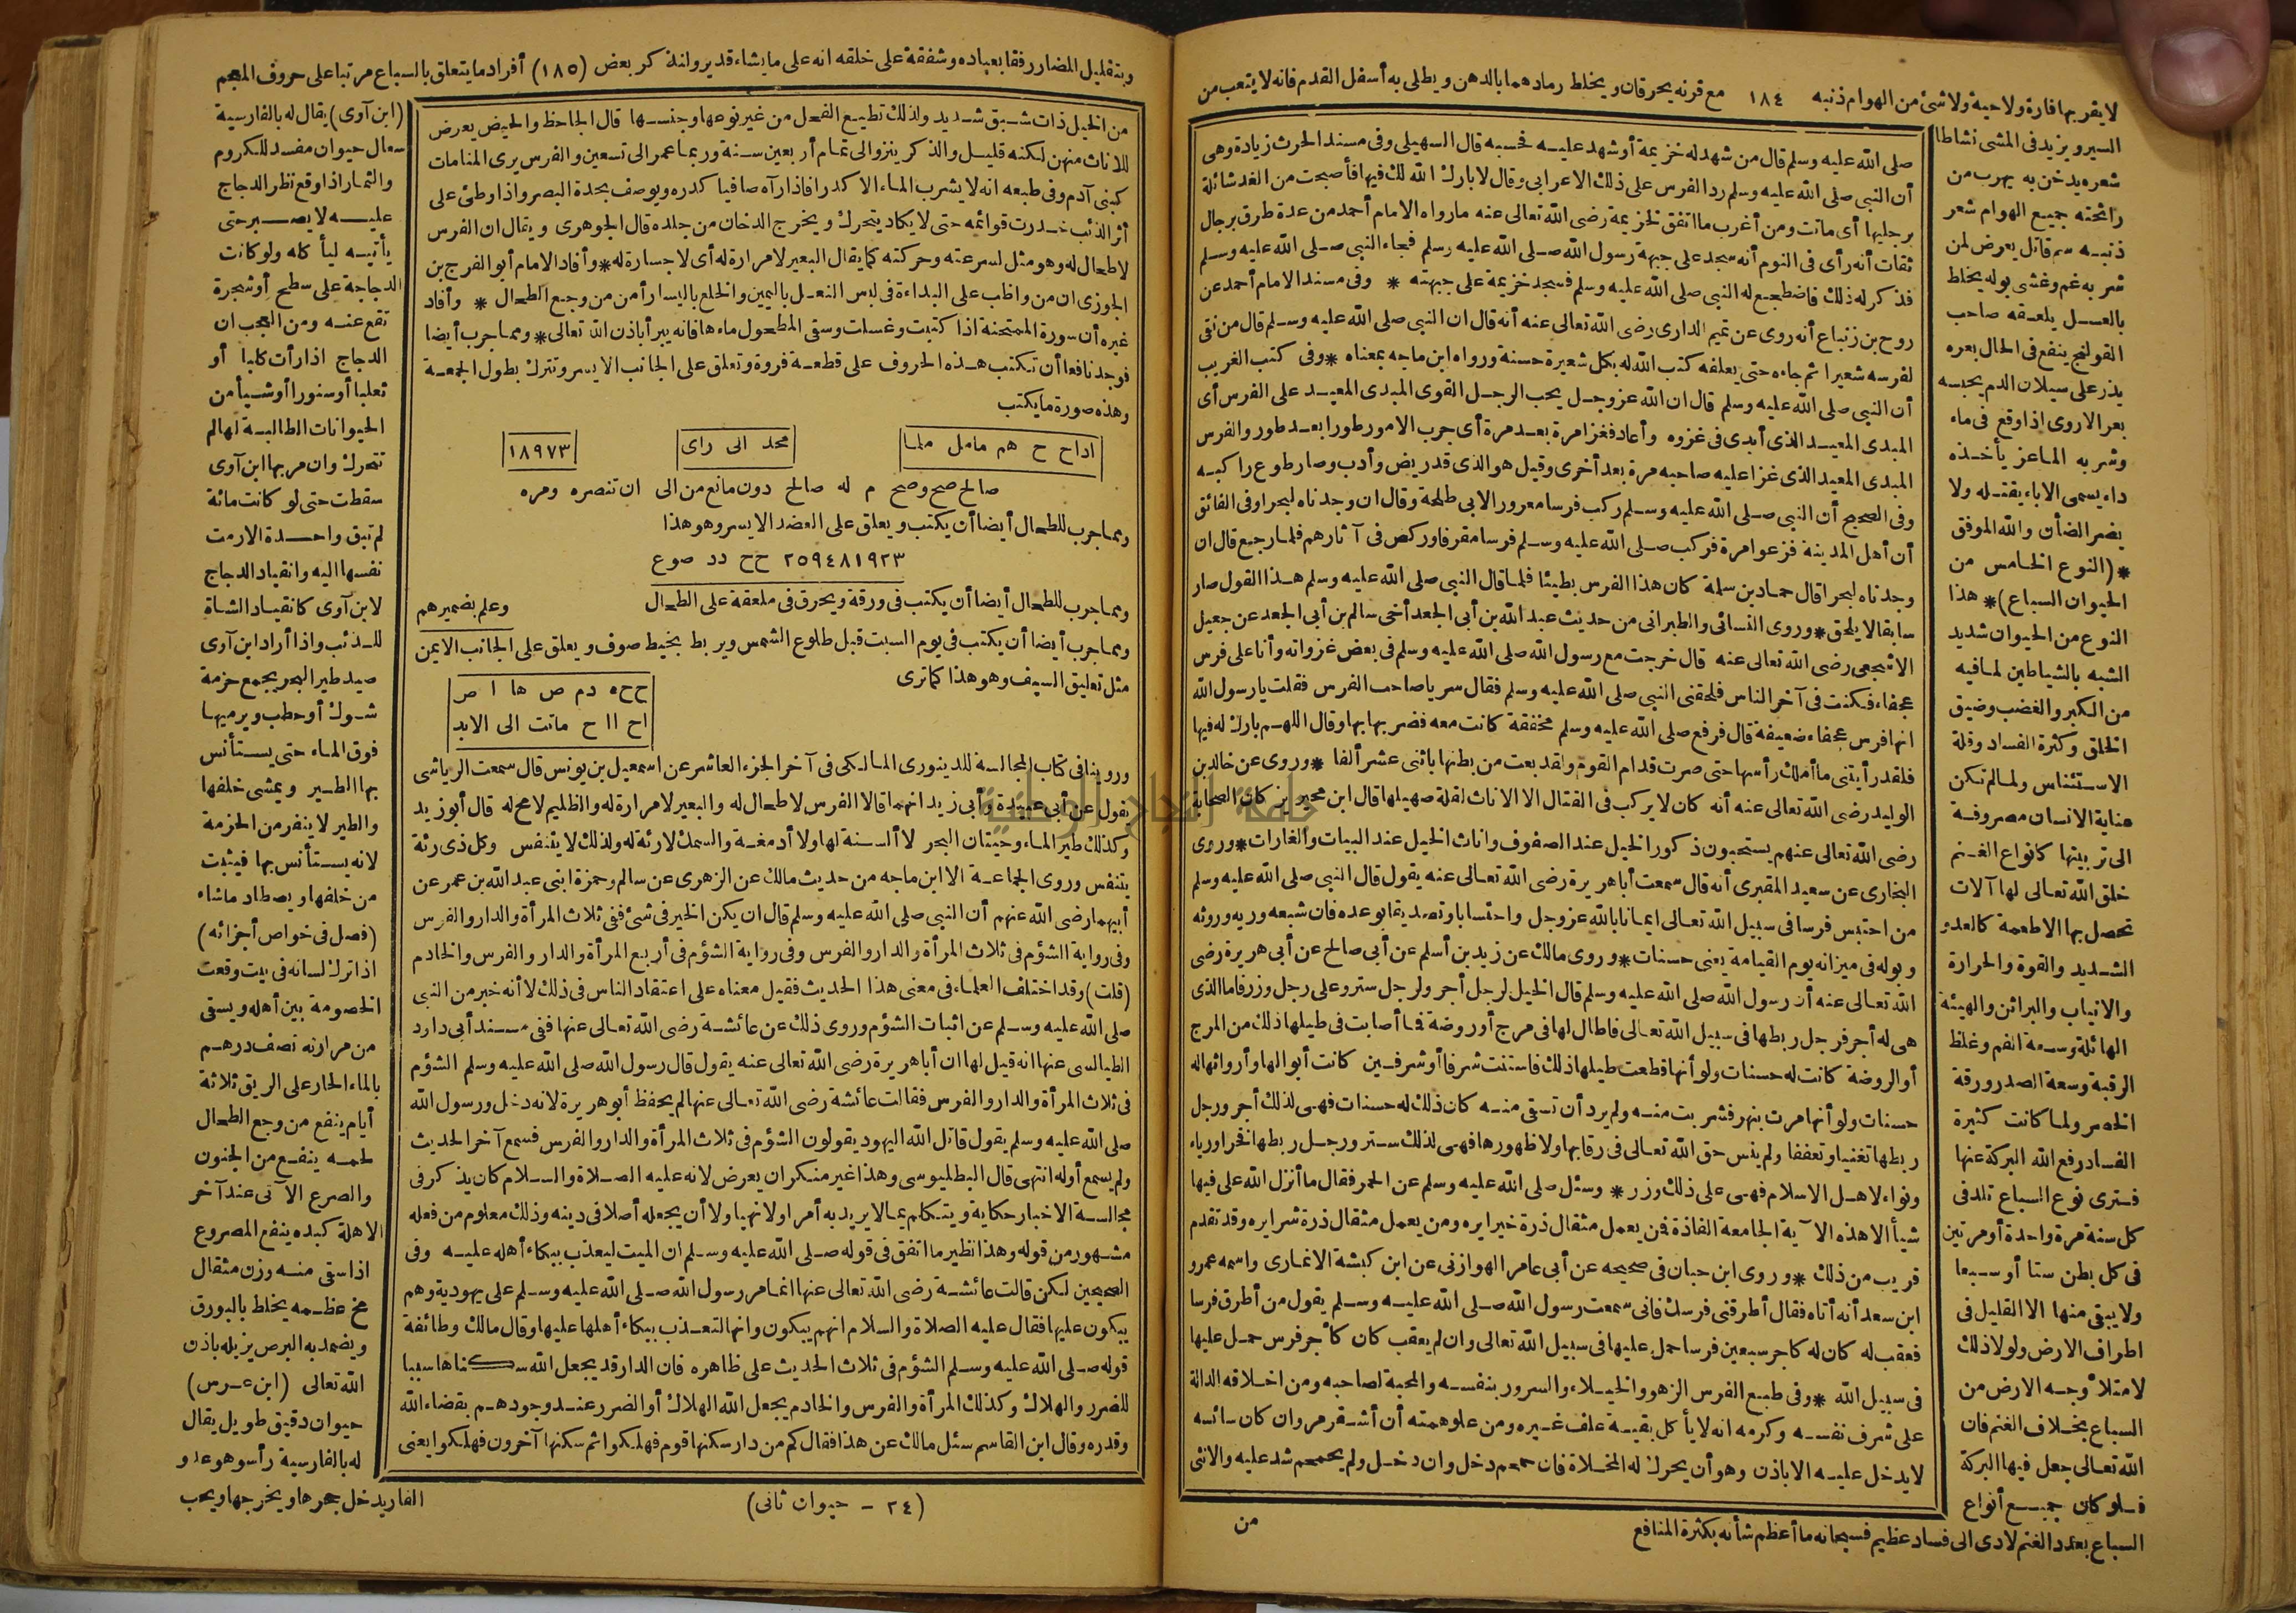 لا يقربها فارة ولا حية ولا شئ من الهوام ذنبه ١٨٤ مع قرنه يحرقان ويخلط رمادهما بالدهن ويطلى به أسفل القدم فانه لا يتعب من
السير ويزيد فى المشى نشاطا
شعره يدخن به يهرب من
رائحته جميع الهوام شعر
ذنبه سم قاتل يعرض لمن
شربه غم وغشى بوله يخلط
بالعسل يلعقه صاحب
القولنج ينفع فى الحال بعره
يذر على سيلان الدم يحبسه
بعر الاروى اذا وقع فى ماء
وشربه الماعز يأخذه
داء يسمى الاباء يقتله ولا
يضر الضأن والله الموفق
*(النوع الخامس من
الحيوان السباع)* هذا
النوع من الحيوان شديد
الشبه بالشياطين لما فيه
من الكبر والغضب وضيق
الخلق وكثرة الفساد وقلة
الاستئناس ولما لم تكن
عناية الانسان مصروفة
الى تربيتها كانواع الغنم
خلق الله تعالى لها آلات
تحصل بها الاطعمة كالعدو
الشديد والقوة والحرارة
والانياب والبراثن والهيئة
الهائلة وسعة الفم وغلظ
الرقبة وسعة الصدر ورقة
الخصر ولما كانت كثيرة
الفساد رفع الله البركة عنها
فترى نوع السباع تلد فى
كل سنة مرة واحدة أو مرتين
فى كل بطن ستا أو سبعا
ولا يبقى منها الا القليل فى
اطراف الارض ولولا ذلك
لامتلأ وجه الارض من
السباع بخلاف الغنم فان
الله تعالى جعل فيها البركة
فلو كان جميع أنواع
السباع بعدد الغنم لادى الى فساد عظيم فسبحانه ما أعظم شأنه بكثرة المنافع
صلى الله عليه وسلم قال من شهد له خزيمة أو شهد عليه فحسبه قال السهيلى وفى مسند الحرث زيادة وهى
أن النبى صلى الله عليه وسلم رد الفرس على ذلك الاعرابى وقال لا بارك الله لك فيها فأصبحت من الغد شائلة
برجليها أى ماتت ومن أغرب ما اتفق لخزيمة رضى الله تعالى عنه ما رواه الامام أحمد من عدة طرق برجال
ثقات أنه رأى فى النوم أنه سجد على جبهة رسول الله صلى الله عليه وسلم فجاء النبى صلى الله عليه وسلم
فذكر له ذلك فاضطجع له النبى صلى الله عليه وسلم فسجد خزيمة على جبهته * وفى مسند الامام أحمد عن
روح بن زنباع أنه روى عن تميم الدارى رضى الله تعالى عنه أنه قال ان النبى صلى الله عليه وسلم قال من نقى
لفرسه شعيرا ثم جاءه حتى يعلفه كتب الله له بكل شعيرة حسنة ورواه ابن ماجه بمعناه * وفى كتب الغريب
أن النبى صلى الله عليه وسلم قال ان الله عز وجل يحب الرجل القوى المبدى المعيد على الفرس أى
المبدى المعيد الذى أبدى فى غزوه وأعاد فغزا مرة بعد مرة أى جرب الامور طورا بعد طور والفرس
المبدى المعيد الذى غزا عليه صاحبه مرة بعد أخرى وقيل هو الذى قد ريض وأدب وصار طوع راكبه
وفى الصحيح أن النبى صلى الله عليه وسلم ركب فرسا معرورا لابى طلحة وقال ان وجدناه لبحرا وفى الفائق
أن أهل المدينة فزعوا مرة فركب صلى الله عليه وسلم فرسا مقرفا وركض فى آثارهم فلما رجع قال ان
وجدناه لبحرا قال حماد بن سلمة كان هذا الفرس بطيئا فلما قال النبى صلى الله عليه وسلم هذا القول صار
سابقا لا يلحق * وروى النسائى والطبرانى من حديث عبد الله بن أبى الجعد أخى سالم بن أبى الجعد عن جعيل
الاشجعى رضى الله تعالى عنه قال خرجت مع رسول الله صلى الله عليه وسلم فى بعض غزواته وأنا على فرس
عجفاء فكنت فى آخر الناس فلحقنى النبى صلى الله عليه وسلم فقال سر يا صاحب الفرس فقلت يا رسول الله
انها فرس عجفاء ضعيفة قال فرفع صلى الله عليه وسلم مخفقة كانت معه فضربها بها وقال اللهم بارك له فيها
فلقد رأيتنى ما أملك رأسها حتى صرت قدام القوم ولقد بعت من بطنها باثنى عشر ألفا * وروى عن خالد بن
الوليد رضى الله تعالى عنه أنه كان لا يركب فى القتال الا الاناث لقلة صهيلها قال ابن محيريز كان الصحابة
رضى الله تعالى عنهم يستحبون ذكور الخيل عند الصفوف واناث الخيل عند البيات والغارات * وروى
البخارى عن سعيد المقبرى أنه قال سمعت أبا هريرة رضى الله تعالى عنه يقول قال النبى صلى الله عليه وسلم
من احتبس فرسا فى سبيل الله تعالى ايمانا بالله عز وجل واحتسابا وتصديقا بوعده فان شبعه وريه وروثه
وبوله فى ميزانه يوم القيامة يعنى حسنات * وروى مالك عن زيد بن أسلم عن أبى صالح عن أبى هريرة رضى
الله تعالى عنه أن رسول الله صلى الله عليه وسلم قال الخيل لرجل أجر ولرجل ستر وعلى رجل وزر فاما الذى
هى له أجر فرجل ربطها فى سبيل الله تعالى فاطال لها فى مرج أو روضة فما أصابت فى طيلها ذلك من المرج
أو الروضة كانت له حسنات ولو أنها قطعت طيلها ذلك فاستنت شرفا أو شرفين كانت أبوالها وأرواثها له
حسنات ولو أنها مرت بنهر فشربت منه ولم يرد أن تسقى منه كان ذلك له حسنات فهى لذلك أجر ورجل
ربطها تغنيا وتعففا ولم ينس حق الله تعالى فى رقابها ولا ظهورها فهى لذلك ستر ورجل ربطها فخرا ورياء
ونواء لاهل الاسلام فهى على ذلك وزر * وسئل صلى الله عليه وسلم عن الحمر فقال ما أنزل الله على فيها
شيأ الا هذه الآية الجامعة الفاذة فمن يعمل مثقال ذرة خيرا يره ومن يعمل مثقال ذرة شرا يره وقد تقدم
قريب من ذلك * وروى ابن حبان فى صحيحه عن أبى عامر الهوازنى عن ابن كبشة الانمارى واسمه عمرو
ابن سعد أنه أتاه فقال أطرقنى فرسك فانى سمعت رسول الله صلى الله عليه وسلم يقول من أطرق فرسا
فعقب له كان له كاجر سبعين فرسا حمل عليها فى سبيل الله تعالى وان لم يعقب كان كأجر فرس حمل عليها
فى سبيل الله * وفى طبع الفرس الزهو والخيلاء والسرور بنفسه والمحبة لصاحبه ومن اخلاقه الدالة
على شرف نفسه وكرمه انه لا يأكل بقية علف غيره ومن علو همته أن أشقر مروان كان سائسه
لا يدخل عليه الا باذن وهو أن يحرك له المخلاة فان حمحم دخل وان دخل ولم يحمحم شد عليه والانثى
من
وبتقليل المضار رفقا بعباده وشفقة على خلقه انه على ما يشاء قدير ولنذكر بعض (١٨٥) أفراد ما يتعلق بالسباع مرتبا على حروف المعجم
من الخيل ذات شبق شديد ولذلك تطيع الفحل من غير نوعها وجنسها قال الجاحظ والحيض يعرض
للاناث منهن لكنه قليل والذكر ينزو الى تمام أربعين سنة وربما عمر الى تسعين والفرس يرى المنامات
كبنى آدم وفى طبعه انه لا يشرب الماء الا كدرا فاذا رآه صافيا كدره ويوصف بحدة البصر واذا وطئ على
أثر الذئب خدرت قوائمه حتى لا يكاد يتحرك ويخرج الدخان من جلده قال الجوهرى ويقال ان الفرس
لا طحال له وهو مثل لسرعته وحركته كما يقال البعير لا مرارة له أى لا جسارة له * وأفاد الامام أبو الفرج بن
الجوزى ان من واظب على البداءة فى لبس النعل باليمين والخلع باليسار أمن من وجع الطحال * وأفاد
غيره أن سورة الممتحنة اذا كتبت وغسلت وسقى المطحول ماءها فانه يبرأ باذن الله تعالى * ومما جرب أيضا
فوجد نافعا أن تكتب هذه الحروف على قطعة فروة وتعلق على الجانب الايسر وتترك بطول الجمعة
وهذه صورة ما يكتب
اداح ح هم مامل ملما محمد الى راى ١٨٩٧٣
صالح صح وصح م له صالح دون مانع من الى ان تنصره ومره
ومما جرب للطحال أيضا أن يكتب ويعلق على العضد الايسر وهو هذا
٢٥٩٤٨١٩٢٣ ح ح دد صوع
ومما جرب للطحال أيضا أن يكتب فى ورقة ويحرق فى ملعقة على الطحال وعلم بضميرهم
ومما جرب أيضا أن يكتب فى يوم السبت قبل طلوع الشمس ويربط بخيط صوف ويعلق على الجانب الايمن
مثل تعليق السيف وهو هذا كما ترى
ح ح ه دم ص ها ا مر
اح اا ح ماتت الى الابد
وروينا فى كتاب المجالسة للدينورى المالكى فى آخر الجزء العاشر عن اسمعيل بن يونس قال سمعت الرياشى
يقول عن أبى عبيدة وأبى زيد انهما قالا الفرس لا طحال له والبعير لا مرارة له والظليم لا مخ له قال أبو زيد
وكذلك طير الماء وحيتان البحر لا ألسنة لها ولا أدمغة والسمك لا رئة له ولذلك لا يتنفس وكل ذى رئة
يتنفس وروى الجماعة الا ابن ماجه من حديث مالك عن الزهرى عن سالم وحمزة ابنى عبد الله بن عمر عن
أبيهما رضى الله عنهم أن النبى صلى الله عليه وسلم قال ان يكن الخير فى شئ ففى ثلاث المرأة والدار والفرس
وفى رواية الشؤم فى ثلاث المرأة والدار والفرس وفى رواية الشؤم فى أربع المرأة والدار والفرس والخادم
(قلت) وقد اختلف العلماء فى معنى هذا الحديث فقيل معناه على اعتقاد الناس فى ذلك لا أنه خبر من النبى
صلى الله عليه وسلم عن اثبات الشؤم وروى ذلك عن عائشة رضى الله تعالى عنها ففى مسند أبى داود
الطيالسى عنها انه قيل لها ان أبا هريرة رضى الله تعالى عنه يقول قال رسول الله صلى الله عليه وسلم الشؤم
فى ثلاث المرأة والدار والفرس فقالت عائشة رضى الله تعالى عنها لم يحفظ أبو هريرة لانه دخل ورسول الله
صلى الله عليه وسلم يقول قاتل الله اليهود يقولون الشؤم فى ثلاث المرأة والدار والفرس فسمع آخر الحديث
ولم يسمع أوله انتهى قال البطليوسى وهذا غير منكر ان يعرض لانه عليه الصلاة والسلام كان يذكر فى
مجالسه الاخبار حكاية ويتكلم بما لا يريد به أمرا ولا نهيا ولا أن يجعله أصلا فى دينه وذلك معلوم من فعله
مشهور من قوله وهذا نظير ما اتفق فى قوله صلى الله عليه وسلم ان الميت ليعذب ببكاء أهله عليه وفى
الصحيحين لكن قالت عائشة رضى الله تعالى عنها انما مر رسول الله صلى الله عليه وسلم على يهودية وهم
يبكون عليها فقال عليه الصلاة والسلام انهم يبكون وانها لتعذب ببكاء أهلها عليها وقال مالك وطائفة
قوله صلى الله عليه وسلم الشؤم فى ثلاث الحديث على ظاهره فان الدار قد يجعل الله سكناها سببا
للضرر والهلاك وكذلك المرأة والفرس والخادم يجعل الله الهلاك أو الضرر عند وجودهم بقضاء الله
وقدره وقال ابن القاسم سئل مالك عن هذا فقال كم من دار سكنها قوم فهلكوا ثم سكنها آخرون فهلكوا يعنى
(ابن آوى) يقال له بالفارسية
سعال حيوان مفسد للكروم
والثمار اذا وقع نظر الدجاج
عليه لا يصبر حتى
يأتيه ليأكله ولو كانت
الدجاجة على سطح أو شجرة
تقع عنه ومن العجب ان
الدجاج اذا رأت كلبا أو
ثعلبا أو سنورا أو شيأ من
الحيوانات الطالبة لها لم
تتحرك وان مر بها ابن آوى
سقطت حتى لو كانت مائة
لم تبق واحدة الا رمت
نفسها اليه وانقياد الدجاج
لابن آوى كانقياد الشاة
للذئب واذا أراد ابن آوى
صيد طير البحر يجمع حزمة
شوك أو حطب ويرميها
فوق الماء حتى يستأنس
بها الطير ويمشى خلفها
والطير لا ينفر من الحزمة
لانه يستأنس بها فيثبت
من خلفها ويصطاد ما شاء
(فصل فى خواص أجزائه)
اذا ترك لسانه فى بيت وقعت
الخصومة بين أهله ويسقى
من مرارته نصف درهم
بالماء الحار على الريق ثلاثة
أيام ينفع من وجع الطحال
لحمه ينفع من الجنون
والصرع الآتى عند آخر
الاهلة كبده ينفع المصروع
اذا سقى منه وزن مثقال
مخ عظمه يخلط بالبورق
ويضمد به البرص يزيله باذن
الله تعالى (ابن عرس)
حيوان دقيق طويل يقال
له بالفارسية رأسو وهو عدو
الفار يدخل جحرها ويخرجها ويحب
(٢٤ - حيوان ثانى)